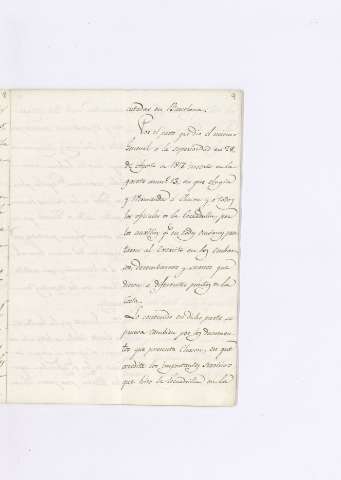 9
citadas en Barcelona.
Por el parte que dio el mismo
General a la superioridad en 28
de Agosto de 1812 inserto en la
gaceta num.º 13, en que elogia
y recomienda a Chacon y a todos
los oficiales de la
los auxilios q.e en todas ocasiones pres-
taron al Exercito en los embar-
cos, desembarcos y
dieron a diferentes puntos de la
Costa.
Lo contenido en dicho parte se
prueva tambien por los documen-
tos que presenta Chacon, en que
acredita los importantes servicios
que hizo la en la